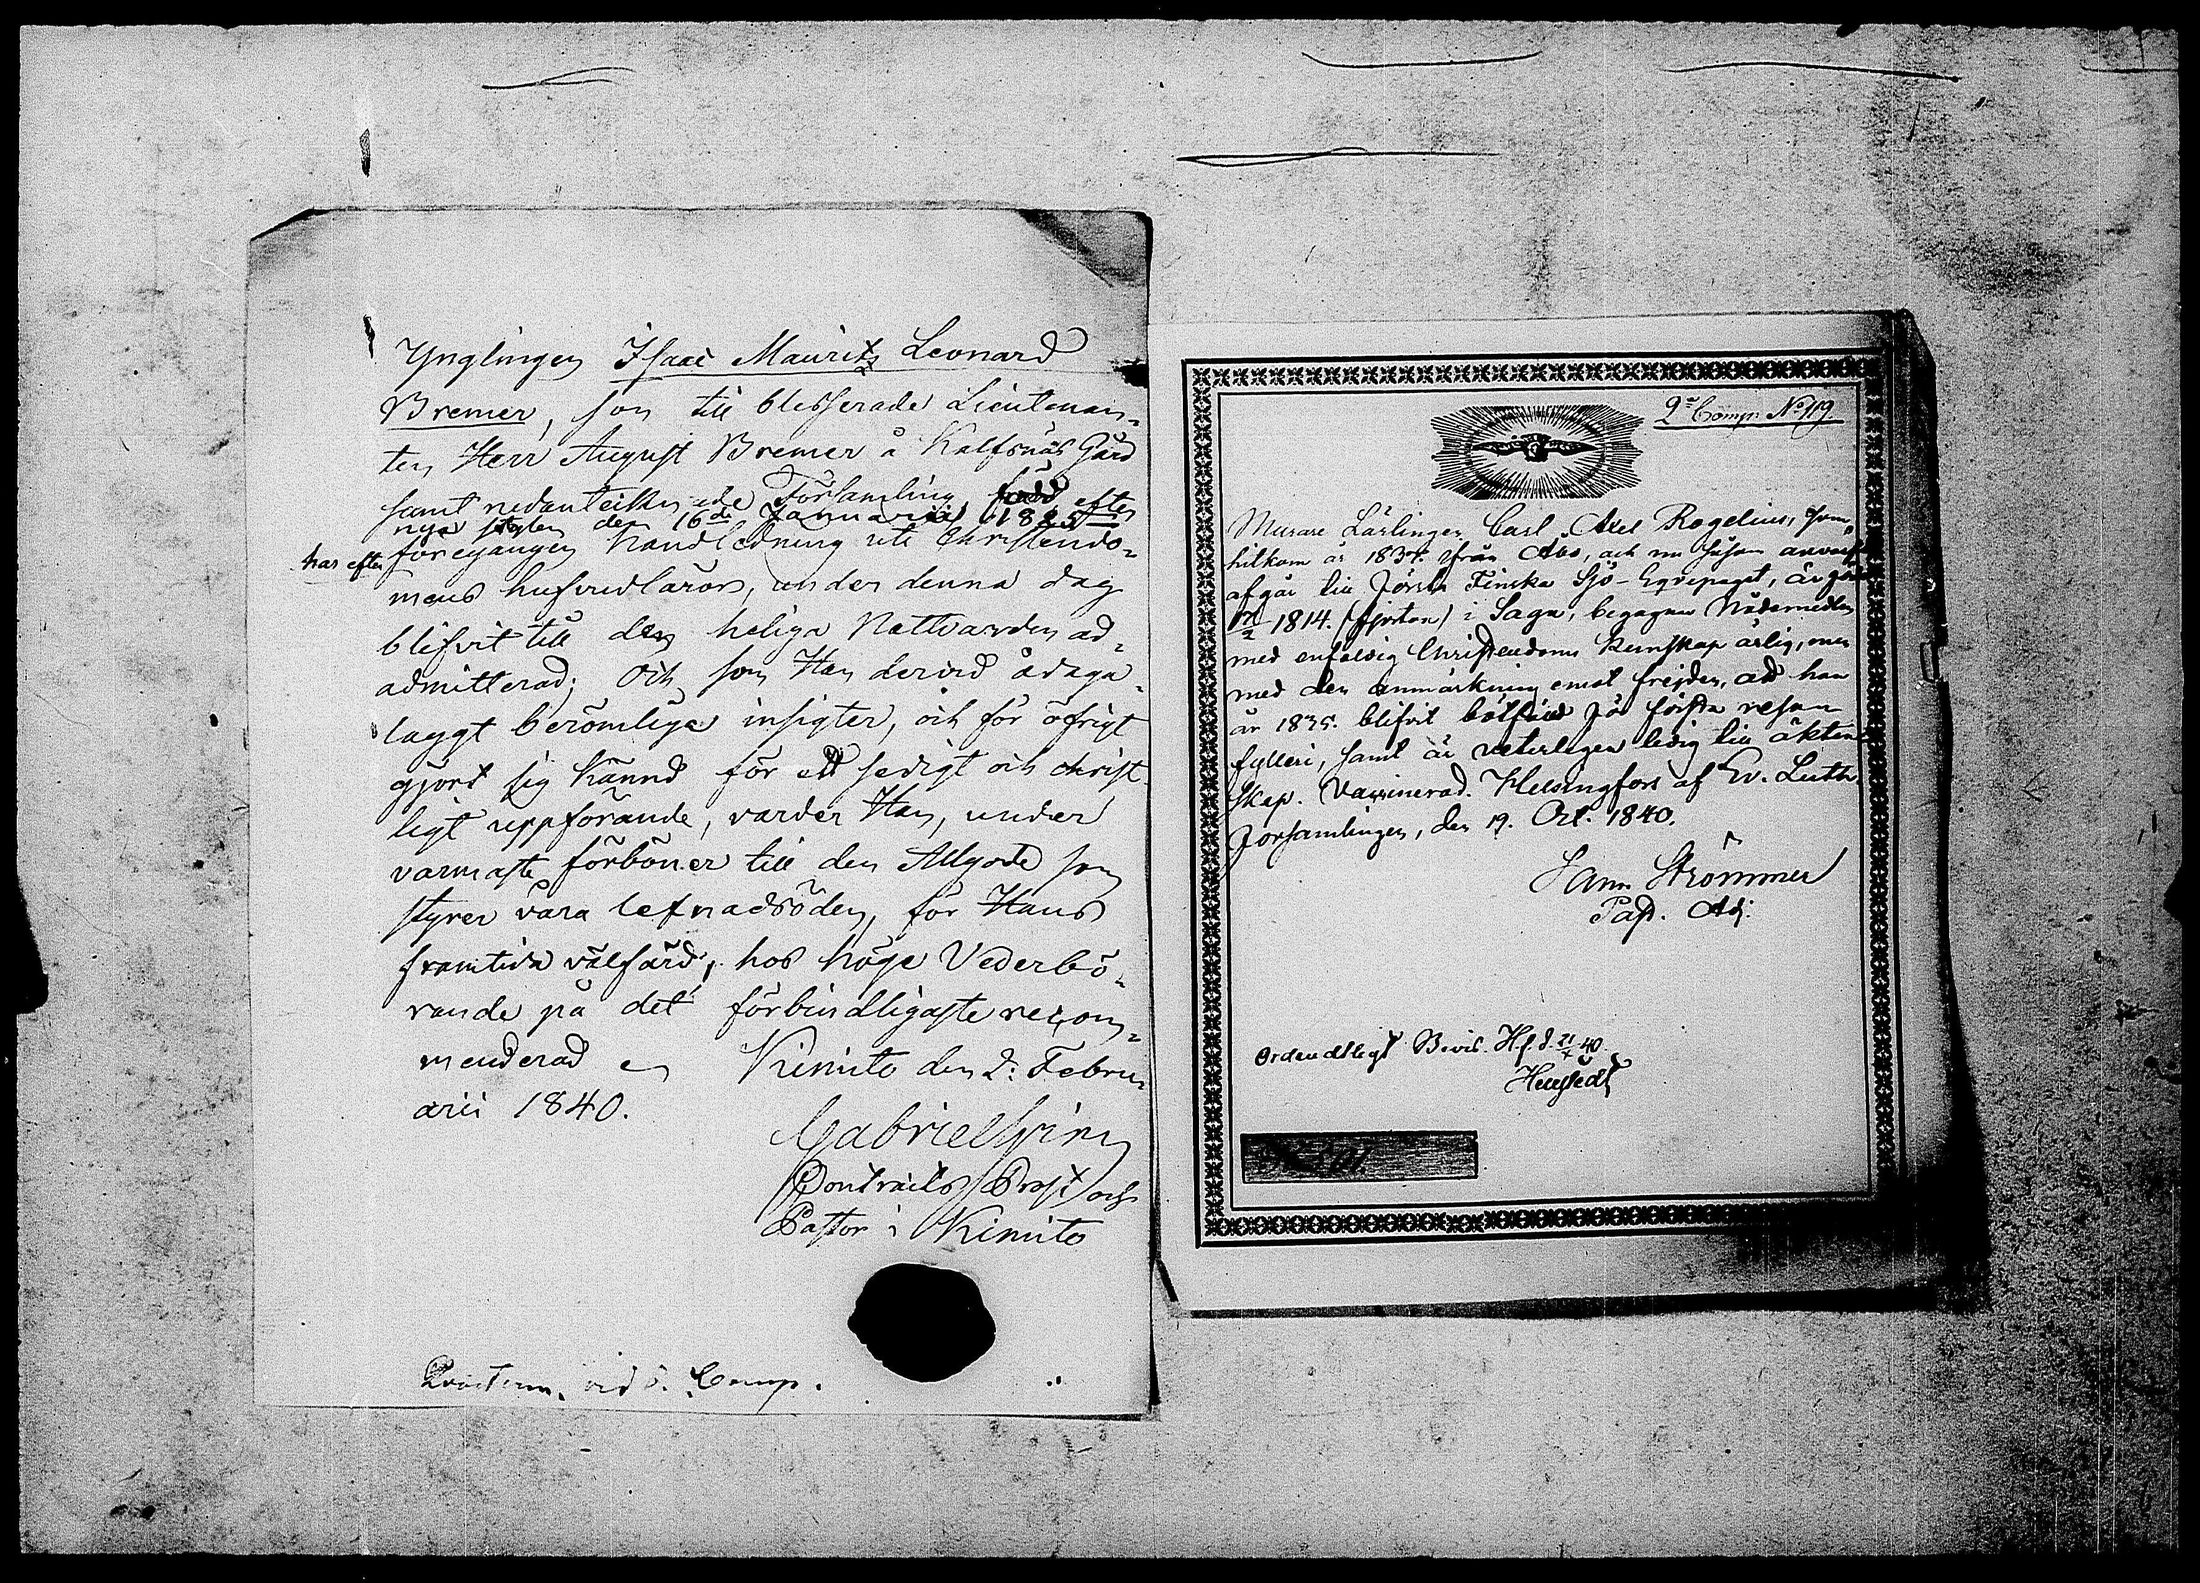 Ynglingen Isaac Mauritz Leonard
Bremer, son till blesserade Lieutenan-
ten Herr August Bremer å Kalfsnäs Gård
samt nedanteiknade Församling, född efter
nya stylen den 16de Januarii 1825
har efter föregången handledning uti Christendo-
mens hufvudläror, under denna dag
blifvit till den heliga Nattvarden ad-
admitterad; Och som Han dervid ådaga-
laggt berömliga insigter, och för öfrigt
gjort sig känd för ett sedigt och christ-
ligt uppförande, varder Han, under
varmaste förböner till den Allgode som
styrer våra lefnadsöden, för Hans
framtida välfärd, hos höge Vederbö-
rande på det förbindligaste recom-
menderad Kimito den 2: Febru-
arii 1840.
Gabriel
Contracts Prost och
Pastor i Kimito
vid 5. Comp.
2a Comp. No 119.
Murare Lärlingen Carl Axel Rogelius, som
hitkom år 1837. från Åbo, och nu såsom
afgår till Första Finska Sjö-Equipaget, är född
1814. (fjorton) i Sagu, begagnar Nådemedlen
med enfaldig Christendoms Kunskap årlig, men
med den anmärkning emot frejden, att han
år 1835. blifvit bötfäld för första resan
fylleri, samt är veterligen ledig till äkten-
skap. Vaccinerad. Helsingfors af Ev. Luth.
Församlingen, den 19. Oct. 1840.
Strömmer
Past. Adj.
Ordentligt Bevis. Hf. d. 21/X 40.